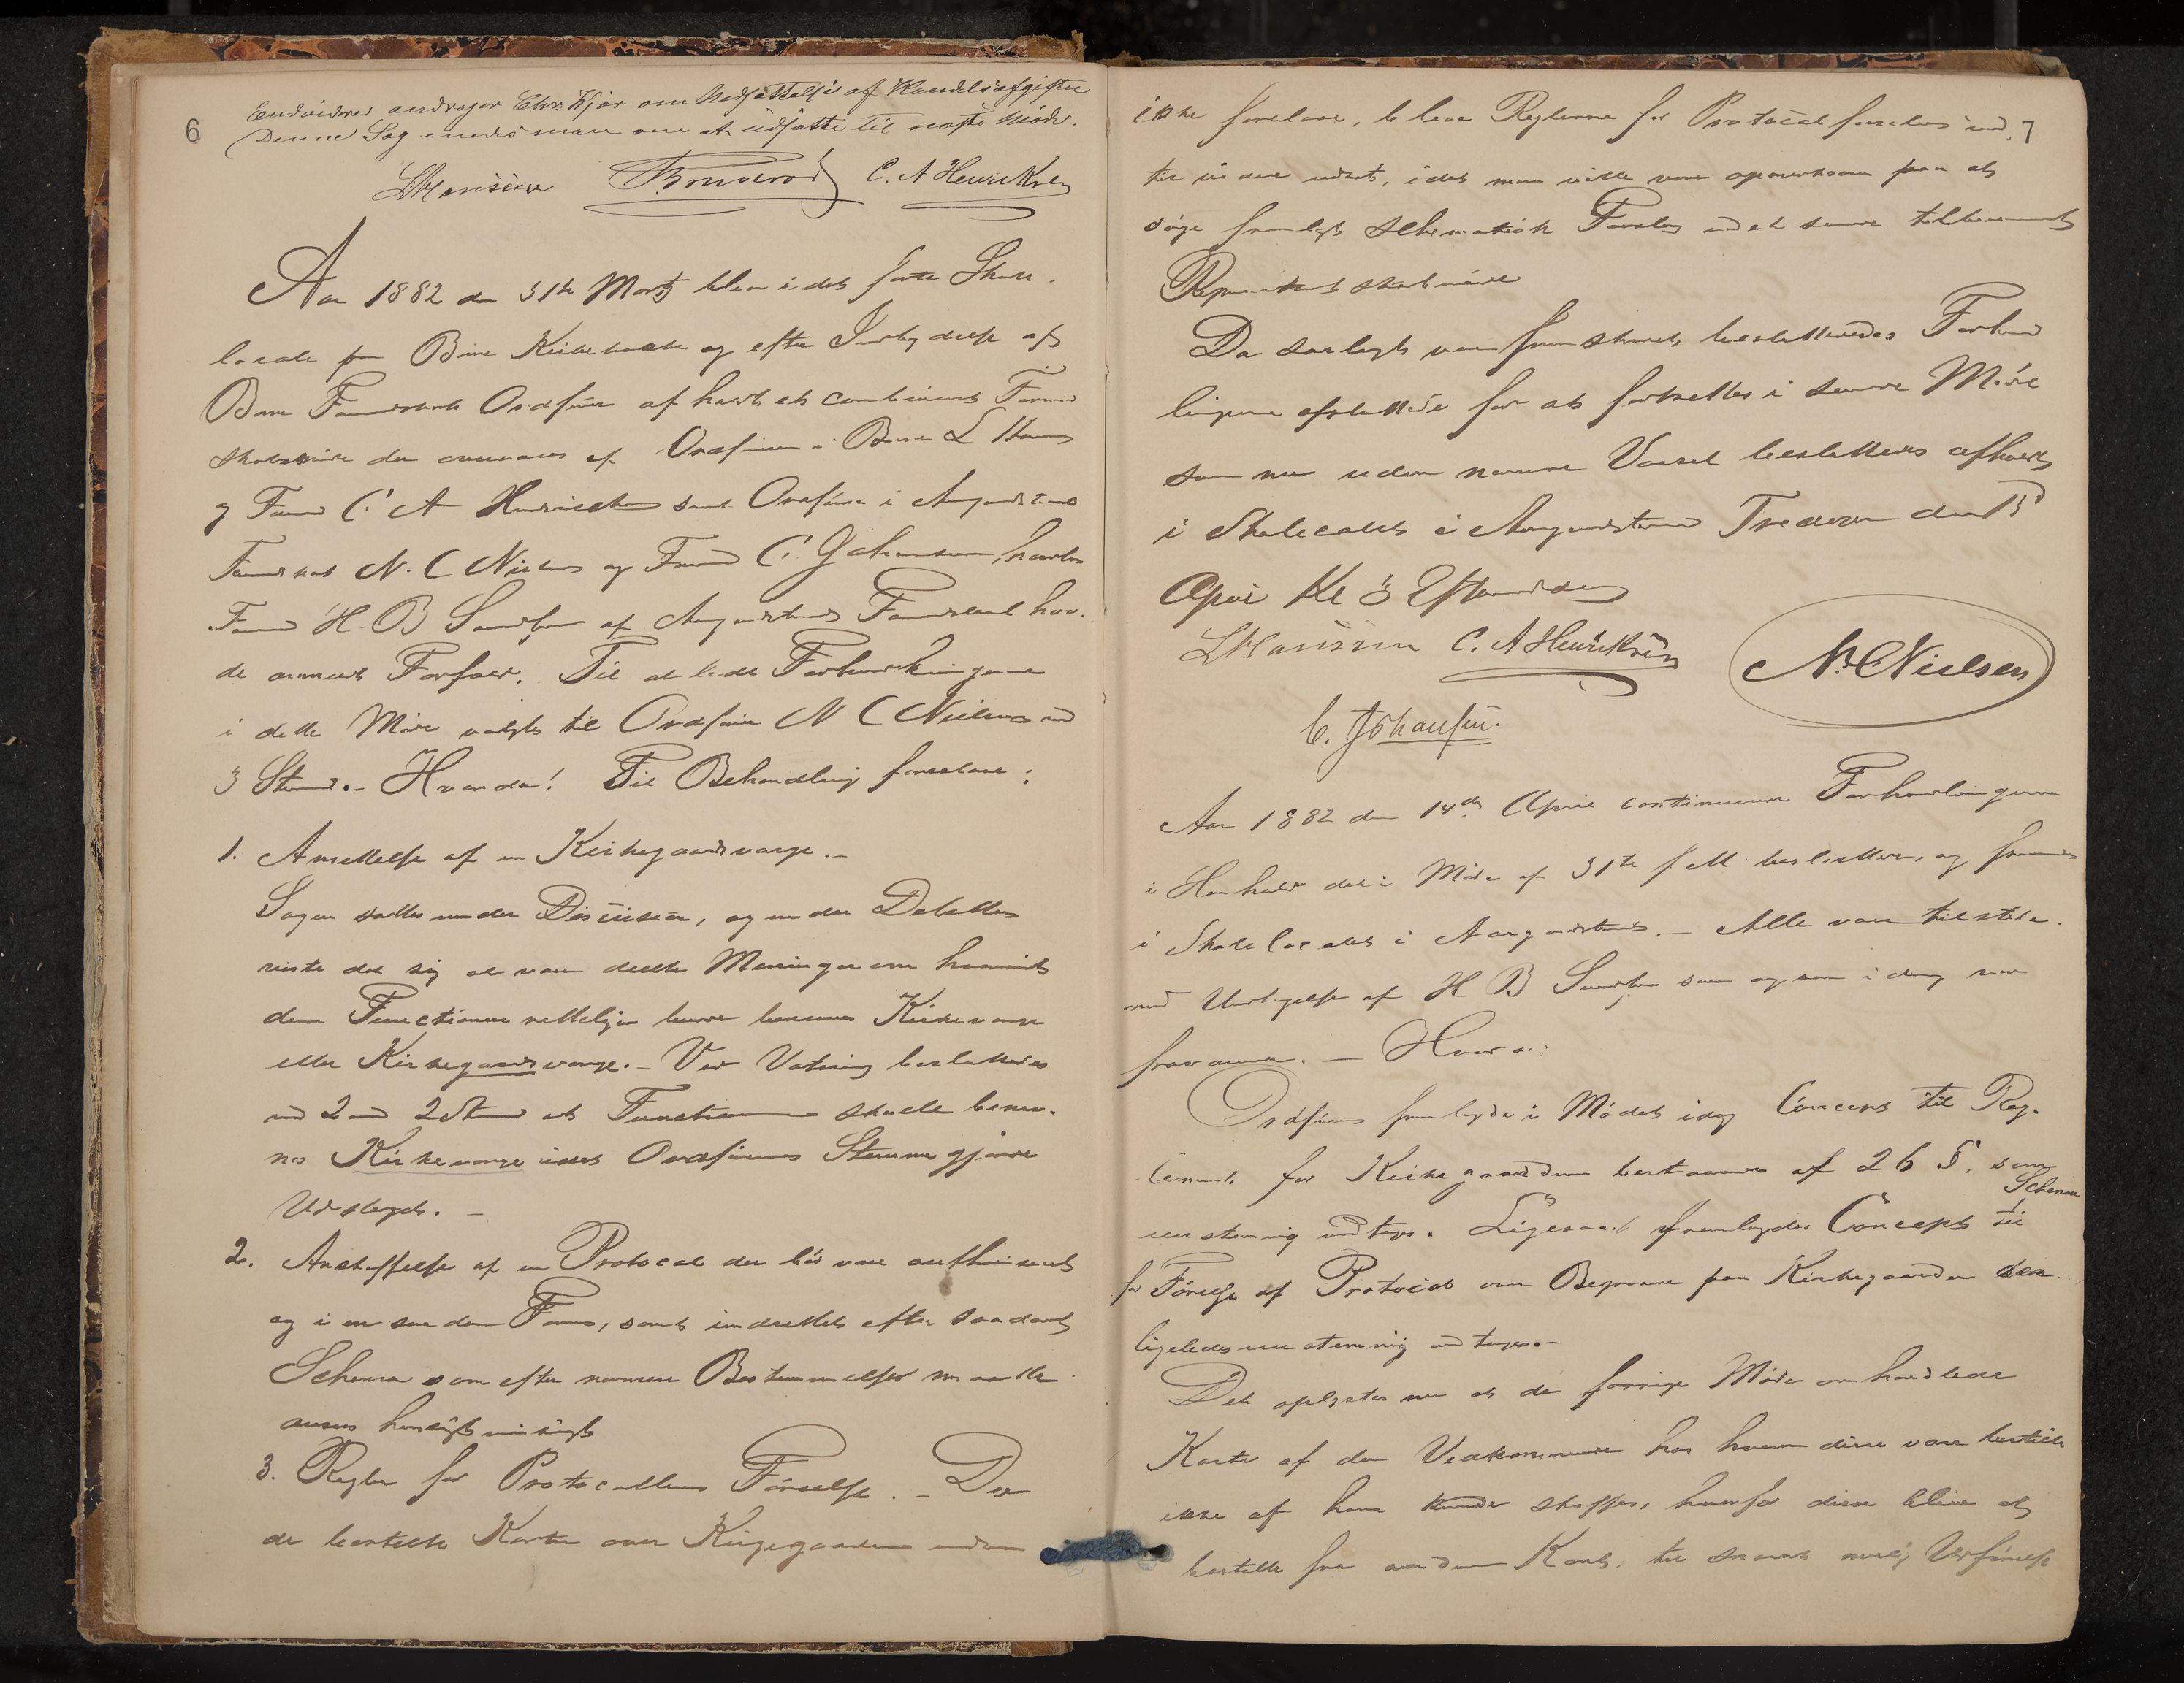 6
Endvidere andrager Chr. Kjær om Nedsættelse af Handelsafgiften
Denne Sag enedes man om at udsætte til næste Møde.
L Hanssen Bruserød C. A Henriksen
Aar 1882 den 31te Marts blev i det faste Skole
locale paa Borre Kirkebakke og efter Indbydelse af
Borre Formandskabs Ordfører afholdt et combineret Formand
skabsmøde der overvares af Ordføreren i Borre L Hanssen
og Formd C. A Henricksen samt Ordfører i Aasgaardstrand
Formandskab N. C Nielsen og Formd C. Johansen, hvorhos
Formd H. B Sundby af Aasgaardstrands Formandskab hav-
de anmeldt Forfald. Til at lede Forhandlingerne
i dette Møde valgtes til Ordfører N C Nielsen med
3 Stemmer. - Hvorda! Til Behandling forelaae:
1. Ansettelse af en Kirkegaardsværge. -
Sagen sattes under Discusion, og under Debatten
viste det sig at være deelte Meninger om hvorvidt
denne Functionær rettelligen burde benævnes Kirkeværge
eller Kirkegaardsværge. - Ved Votering besluttedes
med 2 mod 2 Stemmer at Functionæren skulle benæv-
nes Kirkeværge idet Ordførerens Stemme gjorde
Udslaget. -
2. Anskaffelse af en Protocol der bør være authoriseret
og i en saadan Form, samt inddeelt efter saadant
Schema som efter nærmere Bestemmelser maatte
ansees hensigtsmæssigt
3. Regler for Protocollens Førelse. - Da
de bestilte Karter over Kirkegaarden endnu
7
ikke forelaae, bleve Reglerne for Protocolførelsen ind
til videre udsat, idet man vilde være opmærksom paa at
søge fremlagt Schematisk Forslag ved et senere tilkommende
Repræsentantskabsmøde
Da Saalangt var fremskredet besluttedes Forhand
lingerne afsluttede for at fortsettes i senere Møde
som nu uden nærmere Varsel besluttedes afholdt
i Skolelocalet i Aasgaardstrand Fredagen den 14
April Kl 5 Eftermiddag
L Hanssen C. A Henriksen N. C Nielsen
C. Johansen.
Aar 1882 den 14de April continuerede Forhandlingerne
i Henhold det i Møde af 31te f M besluttede, og fremmede
i Skolelocalet i Aasgaardstrand. - Alle vare tilstede
med Undtagelse af H B Sundby som ogsaa idag var
fraværende. - Hvorda:
Ordføreren fremlagde i Mødet idag Concept til Reg-
lement for Kirkegaarden bestaaende af 26 §. som
eenstemmig vedtoges. Ligesaa fremlagdes Concept til Schema
for Førelse af Protocol over Begravne paa Kirkegaarden der
ligeledes eenstemmig vedtoges. -
Det oplystes nu at de forrige Møde omhandlede
Karter af den Vedkommende hos hvem disse vare bestilte
ikke af ham kunde skaffes, hvorfor disse blive at
bestille fra anden Kant, til snarest mulig Udførelse